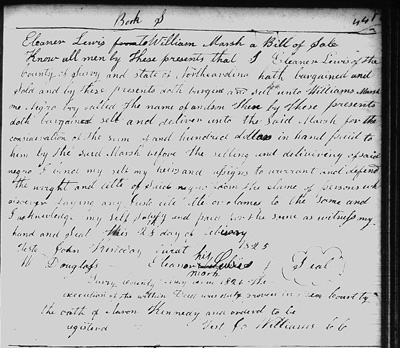 Book S
Eleaner Lewis from to William Marsh a Bill of Sale
Know all men by these presents that I Eleaner Lewis of the
County of Surry and state of Northcarolina hath bargained and
Sold and by these presents doth bargain and sell unto Williams Marsh
one Negro boy called the name of anderson these by these presents
doth bargained sell and deliver unto the Said Marsh for the
consideration of the sum of hundred dollars in hand paid to
him by the said Marsh before the selling and delivering of said
negro I bind my self my heirs and assigns to warrant and defend
the wright and title of Said negro from the claime of persons
laying any Just title or claimes to the Same and
I acknowledge my self Satisfy and paid for the same as witness my
hand and Seal this 25 day of 1825
Test John Jurat his
W Douglass Eleaner Lewis (Seal)
mark
Surry County 1826 The
execution of the within Deed was duly proven in open Court by
the oath of Aaron Kennedy and ordered to be
registered Test Jo Williams